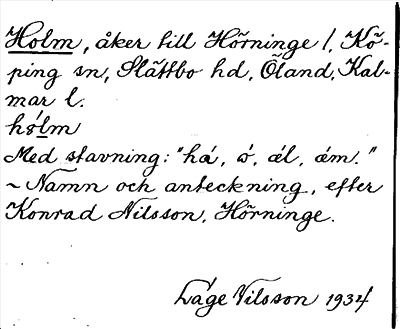 Holm, åker till Hörninge 1, Kö-
ping sn, Slättbo hd, Öland, Kal-
mar l.
hólm
Med stavning: "há, ó, äl, äm."
~ Namn och anteckning, efter
Konrad Nilsson, Hörninge.
Låge Nilsson 1934